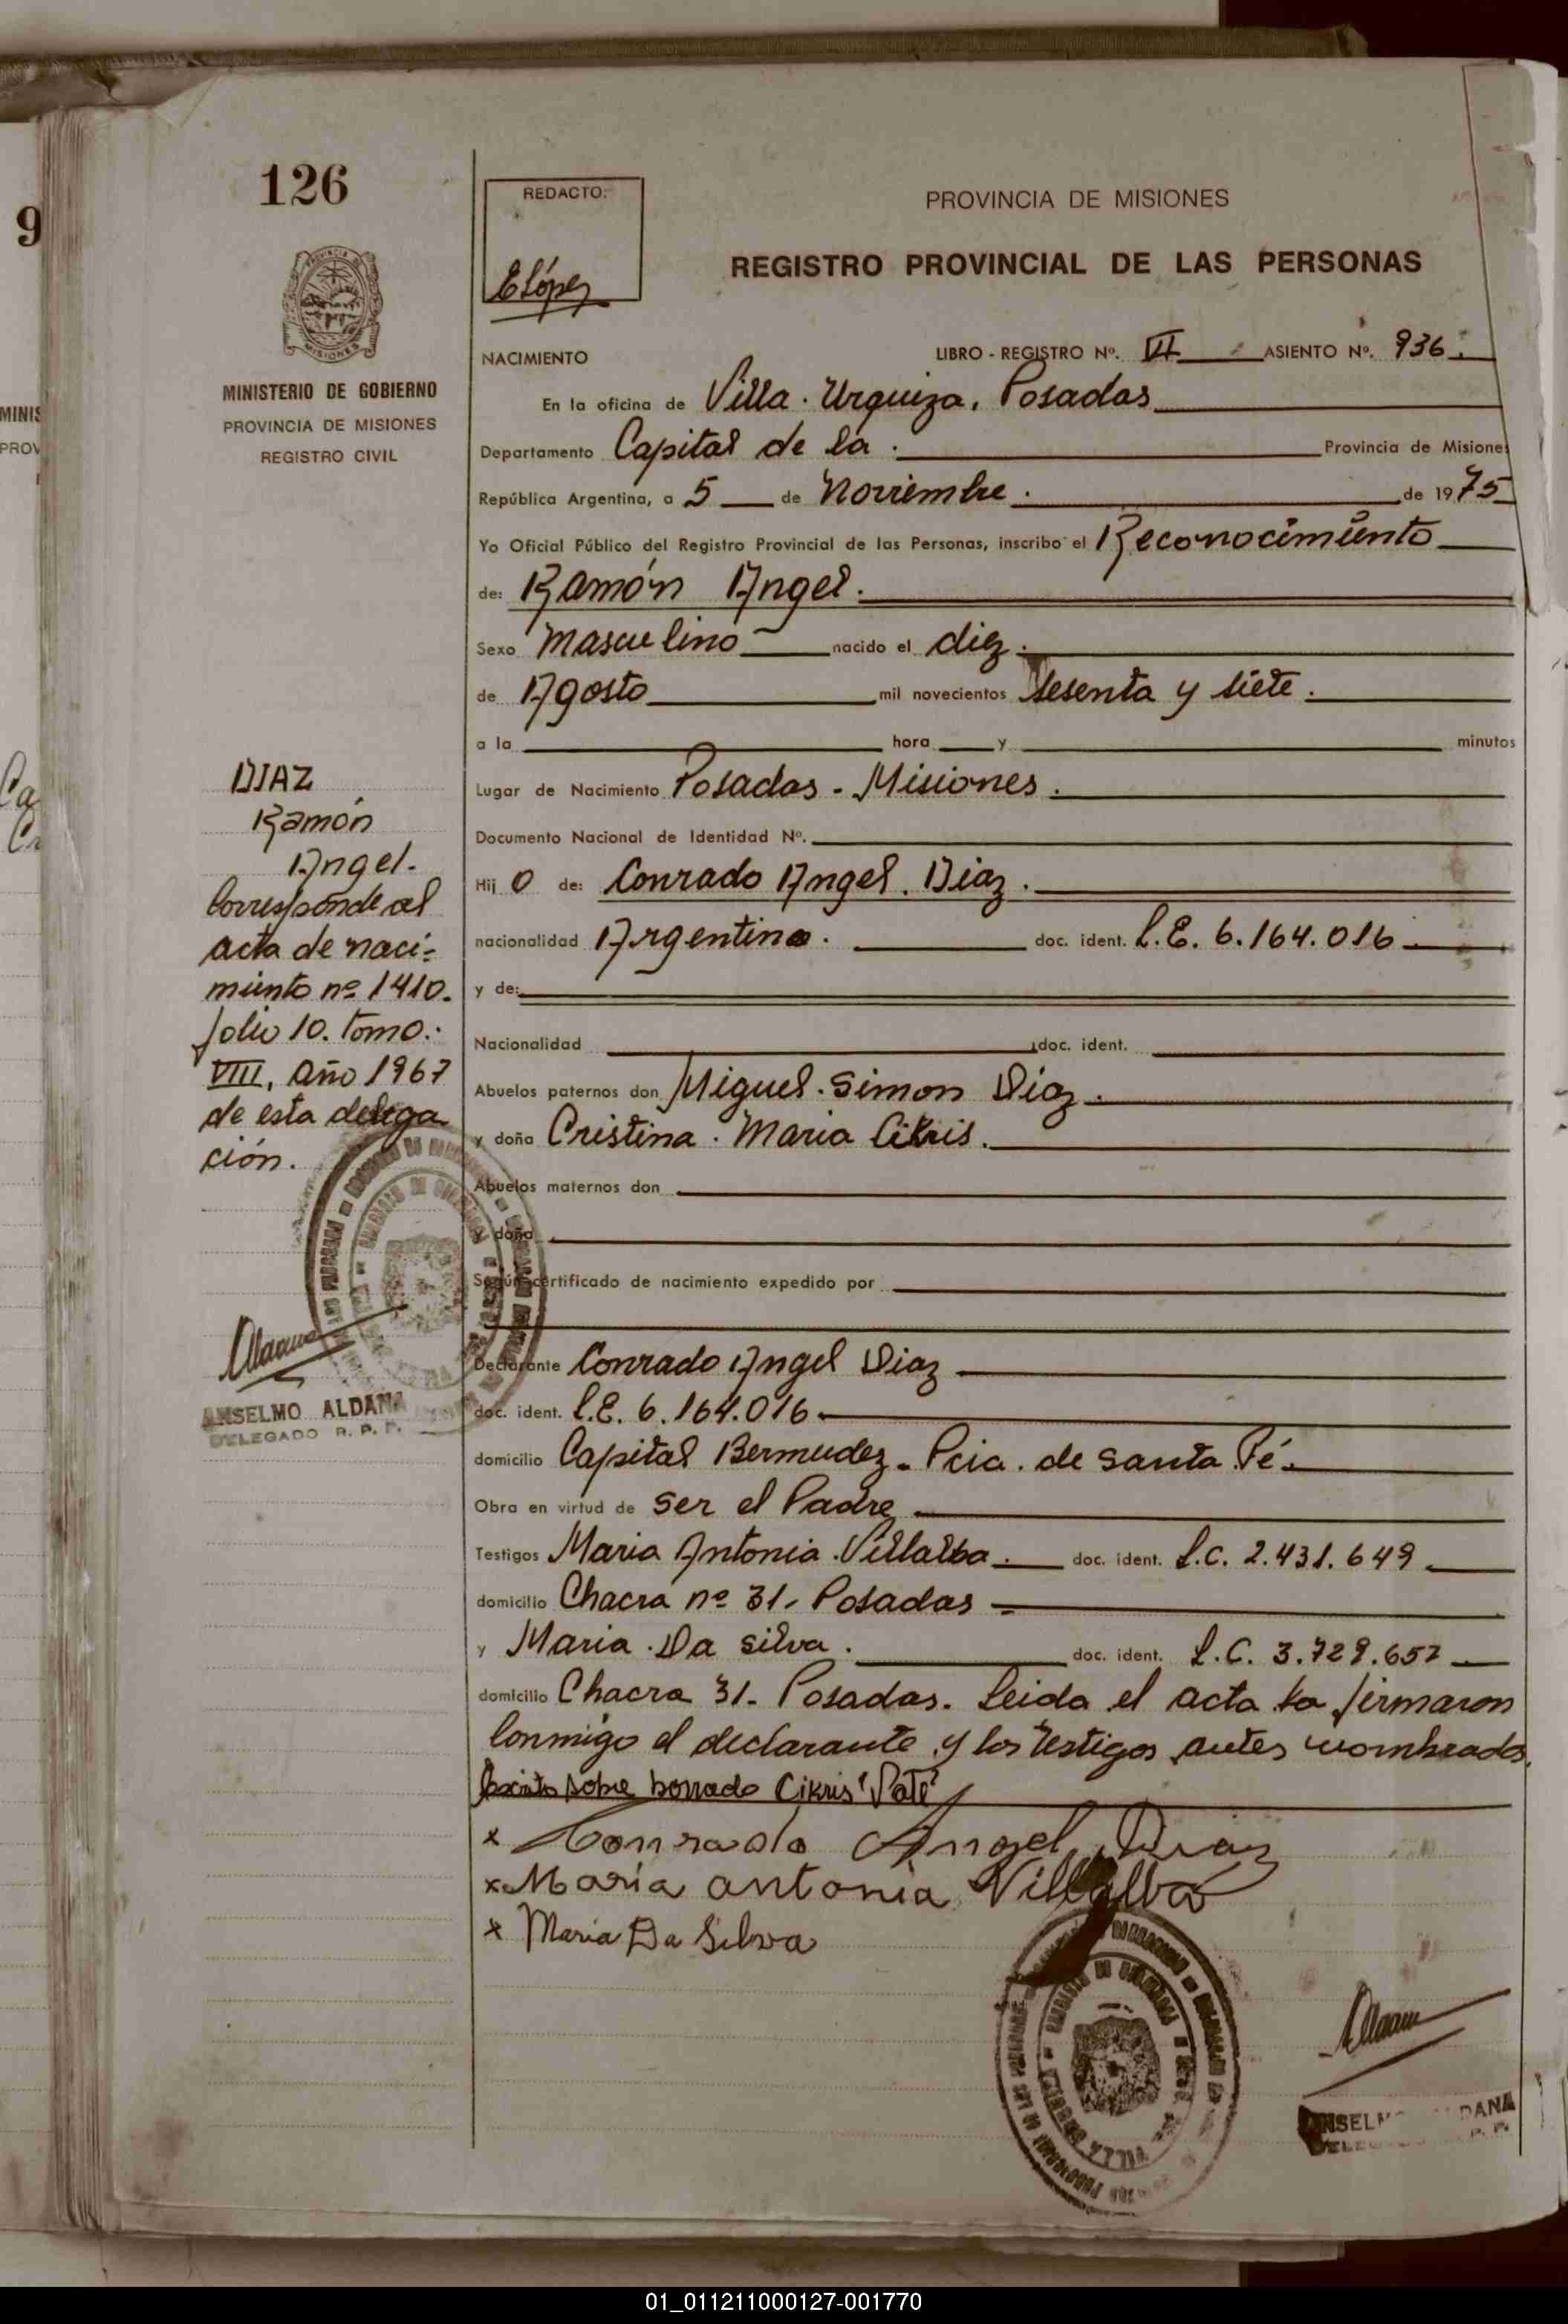 126
MINISTERIO DE GOBIERNO
PROVINCIA DE MISIONES
REGISTRO CIVIL
DIAZ
Ramón
Angel.
Corresponde al
acta de naci-
miento nº 1410.
folio 10. tomo.
VIII, año 1967
de esta delega
ción.
ANSELMO ALDANA
DELEGADO R. P. P.
REDACTO:
E López
PROVINCIA DE MISIONES
REGISTRO PROVINCIAL DE LAS PERSONAS
NACIMIENTO LIBRO - REGISTRO Nº. ASIENTO Nº. 936.
En la oficina de Villa. Urquiza, Posadas
Departamento Capital de la. Provincia de Misiones
República Argentina, a 5 de Noviembre. de 1975
Yo Oficial Público del Registro Provincial de las Personas, inscribo el Reconocimiento
de: Ramón Angel.
Sexo Masculino nacido el diez.
de Agosto mil novecientos sesenta y siete.
a la hora y minutos
Lugar de Nacimiento Posadas - Misiones.
Documento Nacional de Identidad Nº.
Hij o de: Conrado Angel. Diaz.
nacionalidad Argentino. doc. ident. L.E. 6.164.016
y de:
Nacionalidad doc. ident.
Abuelos paternos don Miguel. Simon Diaz.
y doña Cristina. Maria Cikris.
Abuelos maternos don
y doña
Según certificado de nacimiento expedido por
Declarante Conrado Angel Diaz
doc. ident. L.E. 6.164.016
domicilio Capital Bermudez. Pcia. de Santa Fé.
Obra en virtud de ser el Padre
Testigos Maria Antonia. Villalba. doc. ident. L.C. 2.431.649
domicilio Chacra nº 31. Posadas
y Maria. Da silva. doc. ident. L.C. 3.729.657
domicilio Chacra 31. Posadas. Leida el acta la firmaron
conmigo el declarante y los testigos antes nombrados.
Escrito sobre borrado Cikris
x Conrado Angel Diaz
x Maria antonia Villalba
x Maria Da Silva
VILLA URQUIZA
01_011211000127-001770